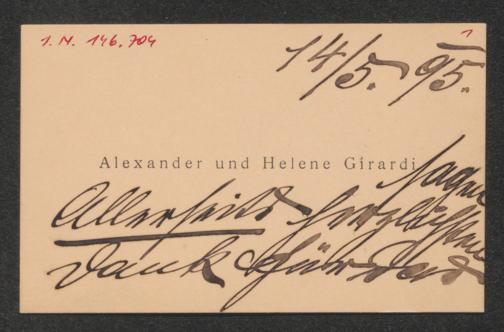 I. N. 146.704
1
14/5. 95.
Alexander und Helene Girardi
sagen
Allerseits herzlichsten
Dank